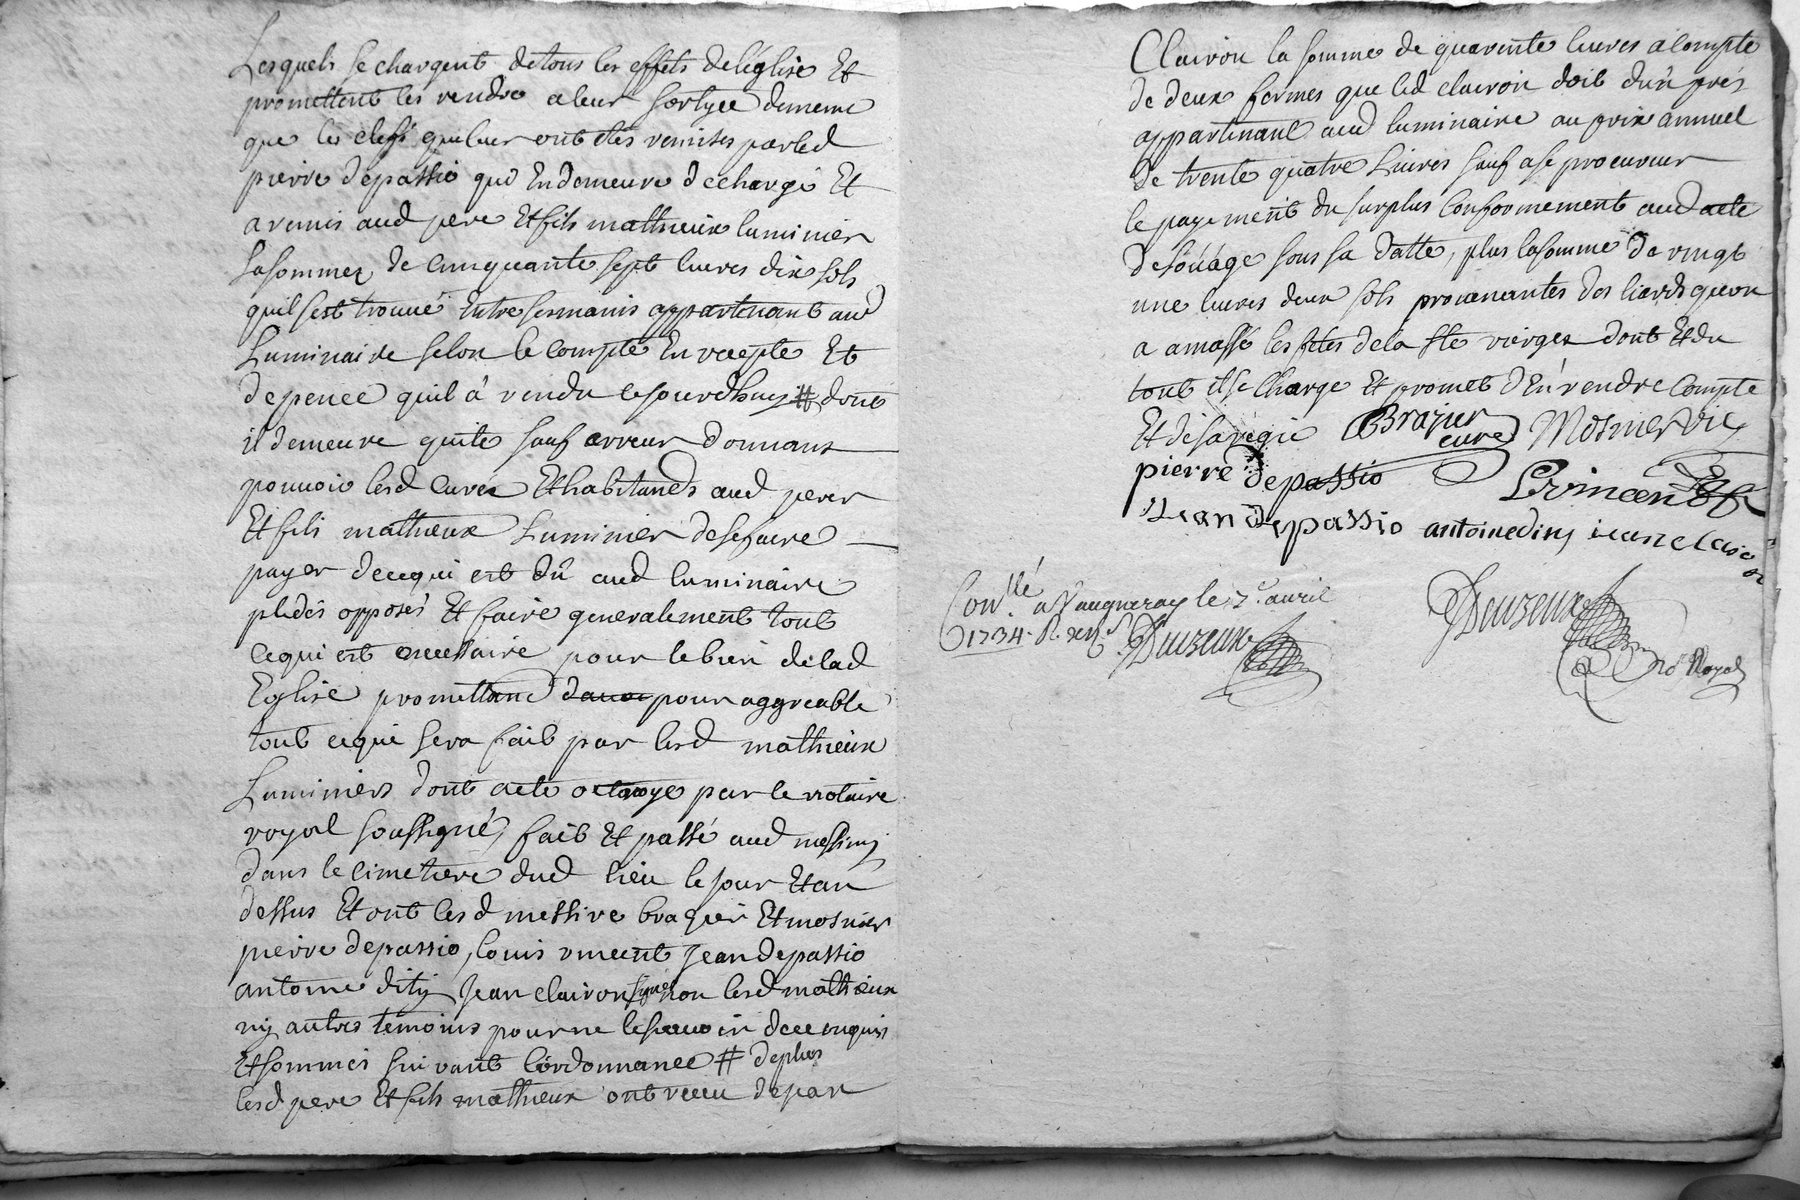 Lesquels se chargent de tous les effets de léglise Et
promettent les rendre a leur sortyee dememe
que les clefs quileur ont étés remises parled
pierre depassio qui En demeure dechargé Et
a remis aud pere Et fils mathieux luminier
la somme de cinquante sept livres dix sols
quil sest trouvé Entre ses mains appartenant aud
Luminaire selon le compte En recepte Et
depence quil á rendu cejourdhuy # dont
il demeure quite sauf erreur donnant
pouvoir lesd Curés Et habitands aud pere
Et fils mathieux Luminier de se faire
payer decequi est dû aud luminaire
pldés opposés Et faire generalement tout
cequi est necessaire pour le bien delad
Eglise promettant davoir pour aggreable
tout ceque sera fait par lesd mathieux
Luminiers dont acte octroyé par le notaire
royal soussigné, fait Et passé aud messimy
dans le cimetiere dud lieu le jour Et an
dessus Et ont lesd messire brazier Et mosnier
pierre depassio, louis vincent Jean depassio
antoine dity Jean clairon signé non lesd mathieux
ny autres temoins pour ne le scavoir dece enquis
Et sommés suivant lórdonnance # deplus
lesd pere Et fils mathieux ont receu de jean
Clairon la somme de quarente livres acompte
de deux fermes que led clairon doit dún prés
appartenant aud luminaire au prix annuel
de trente quatre Livres sauf a se procurer
le payement du surplus Conformement aud acte
de loüage sous sa datte, plus la somme de vingt
une livres deux sols provenantes des liards queon
a amassé les fetes de la ste vierge dont Et du
tout il se charge Et promet dEn rendre Compte
Et de sa régie Brazier curé Mosnier vic
pierre depassio L vincent
Jean depassio antoine dity iean clairon
Conllé a Vaugneray le 7e avril
1734. R. Deuzeux
Deuzeux
No Royal